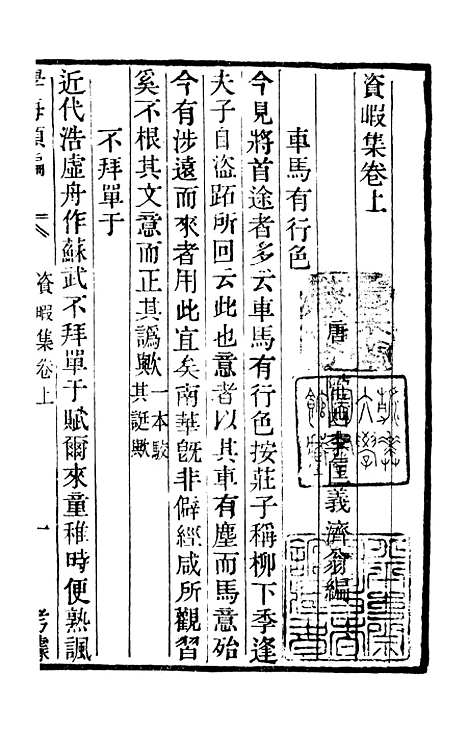 資暇集卷上
唐 隴西李匡乂濟翁編
車馬有行色
今見將首途者多云車馬有行色按莊子稱柳下季逢
夫子自盜跖所回云此也意者以其車有塵而馬意殆
今有涉遠而來者用此宜矣南華旣非僻經咸所觀習
奚不根其文意而正其譌歟一本駮其誕歟
不拜單于
近代浩虛舟作蘇武不拜單于賦爾來童稚時便熟諷
資暇集卷上
一